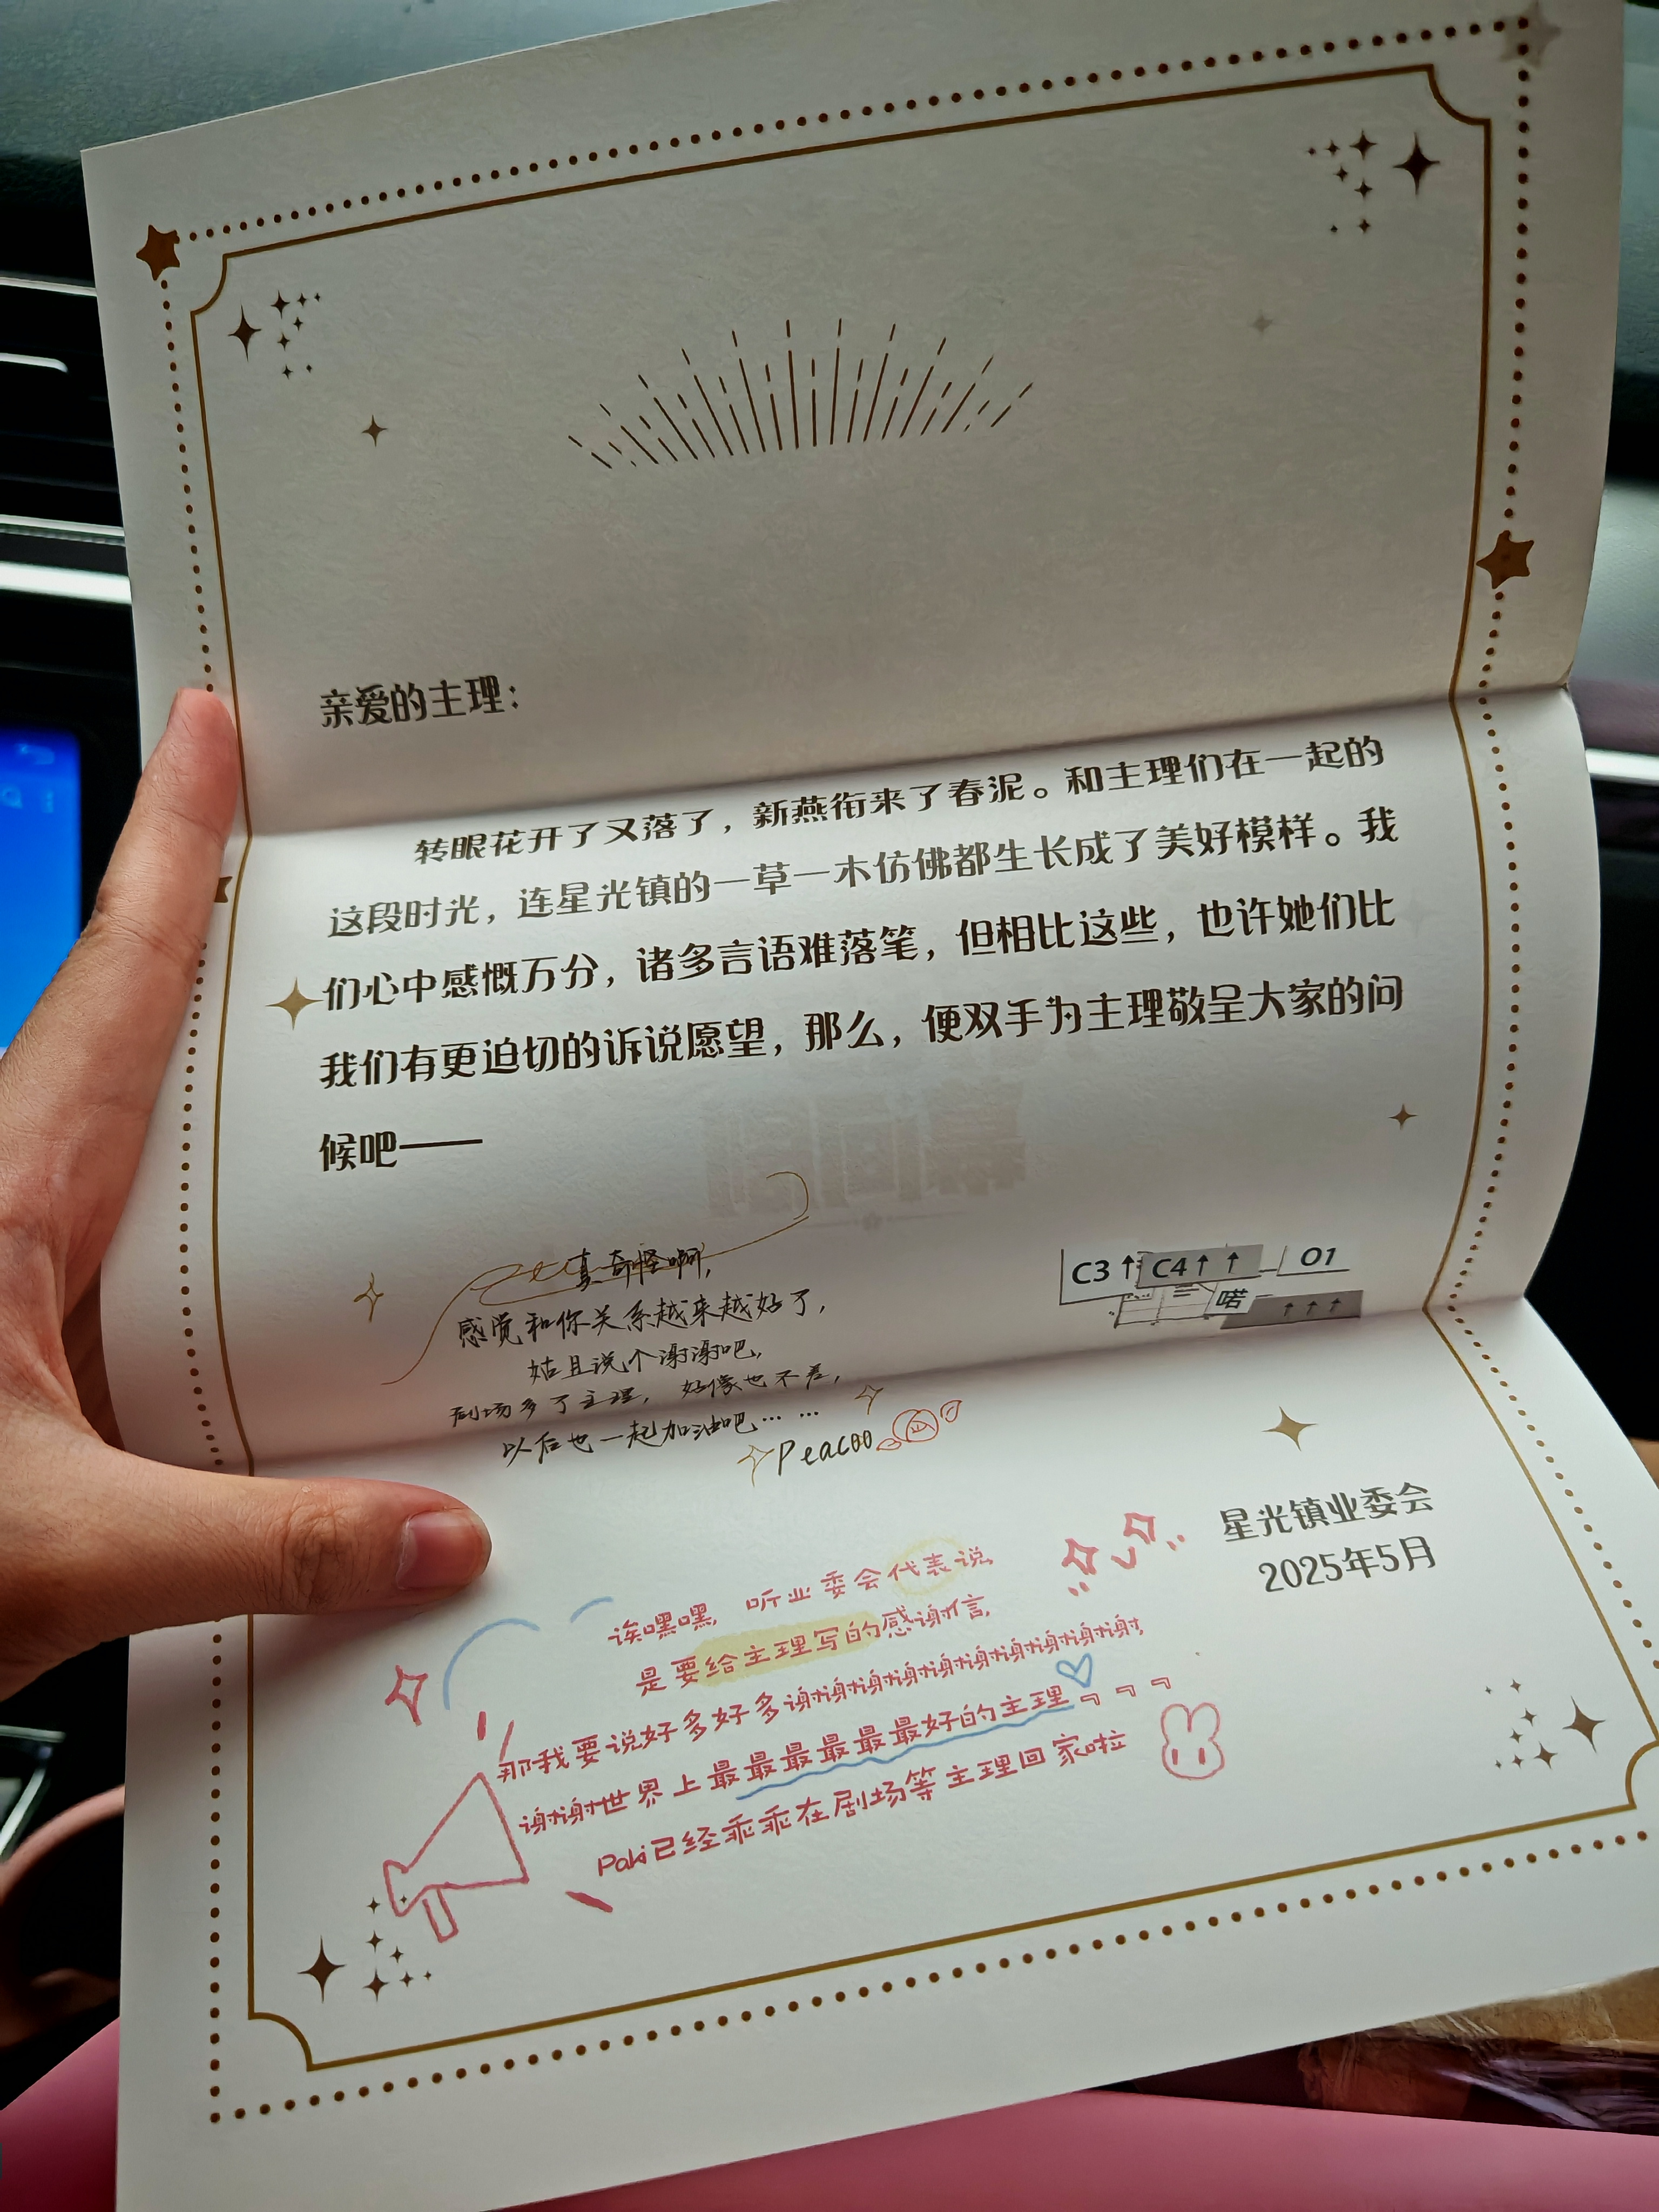 亲爱的主理：
转眼花开了又落了，新燕衔来了春泥。和主理们在一起的
这段时光，连星光镇的一草一木仿佛都生长成了美好模样。我
们心中感慨万分，诸多言语难落笔，但相比这些，也许她们比
我们有更迫切的诉说愿望，那么，便双手为主理敬呈大家的问
候吧——
真奇怪啊，
感觉和你关系越来越好了，
姑且说个谢谢吧，
剧场多了主理，好像也不差，
以后也一起加油吧……
Peacoo
C3↑ C4↑ ↑ 01
喏 ↑↑↑
星光镇业委会
2025年5月
诶嘿嘿，听业委会代表说，
是要给主理写的感谢信，
那我要说好多好多谢谢谢谢谢谢谢谢谢谢，
谢谢世界上最最最最最最好的主理~~~
Paki已经乖乖在剧场等主理回家啦